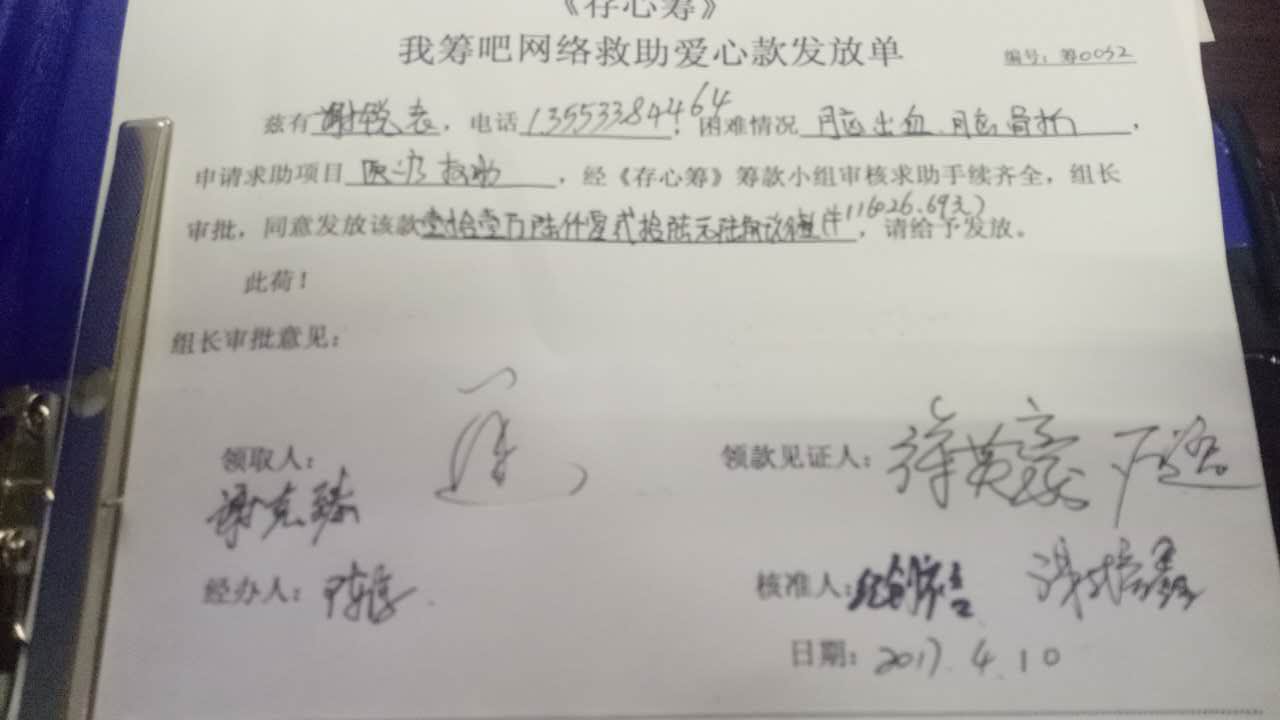 《存心筹》
我筹吧网络救助爱心款发放单
编号：筹0032
兹有谢锐表，电话13553384464，困难情况 脑出血.脑骨折，
申请求助项目 医疗救助，经《存心筹》筹款小组审核求助手续齐全，组长
审批，同意发放该款壹拾壹万陆仟零贰拾陆元陆角玖分（116026.69元），请给予发放。
此荷！
组长审批意见：
领取人：
领款见证人：
谢克臻
经办人：
核准人：
日期：2017.4.10